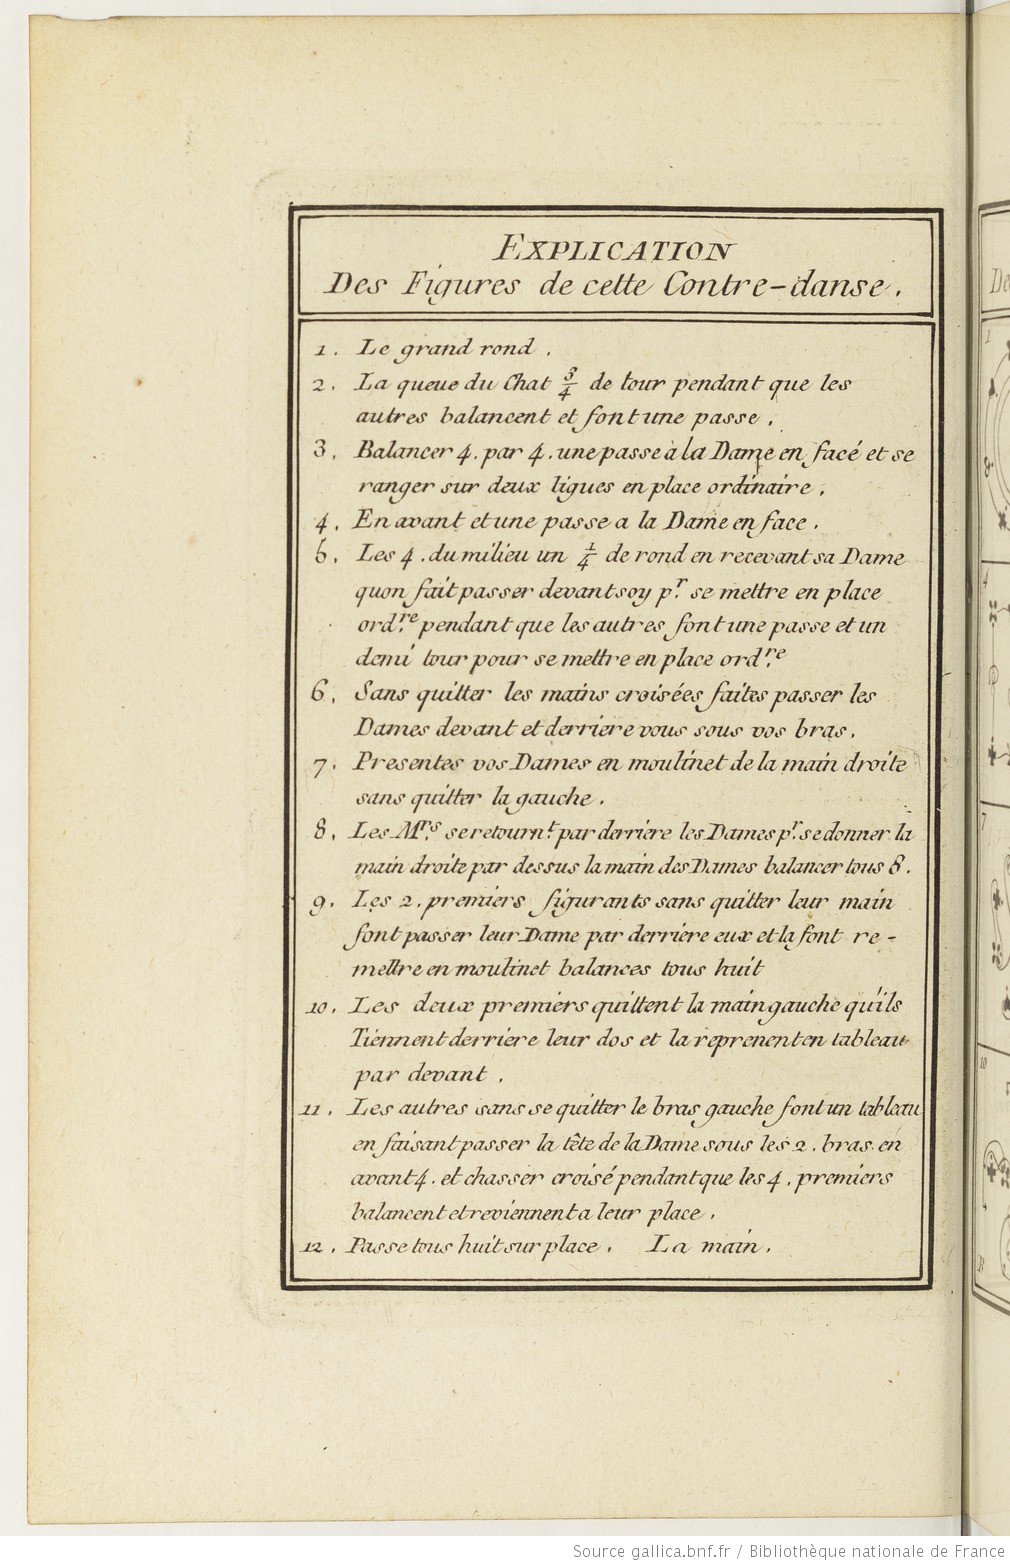 EXPLICATION
Des Figures de cette Contre-danse.
1. Le grand rond.
2. La queue du Chat 3/4 de tour pendant que les
autres balancent et font une passe.
3. Balancer 4. par 4. une passe à la Dame en facé et se
ranger sur deux ligues en place ordinaire.
4. En avant et une passe a la Dame en face.
5. Les 4. du milieu un 1/4 de rond en recevant sa Dame
quon fait passer devant soy pr. se mettre en place
ordre. pendant que les autres font une passe et un
demi tour pour se mettre en place ordre.
6. Sans quitter les mains croisées faites passer les
Dames devant et derriere vous sous vos bras.
7. Presentes vos Dames en moulinet de la main droite
sans quitter la gauche.
8. Les Mrs. se retournt. par derriere les Dames pr. se donner la
main droite par dessus la main des Dames balancer tous 8.
9. Les 2. premiers figurants sans quitter leur main
font passer leur Dame par derriere eux et la font re-
mettre en moulinet balances tous huit
10. Les deux premiers quittent la main gauche qu'ils
Tiennent derriere leur dos et la reprenent en tableau
par devant.
11. Les autres sans se quitter le bras gauche font un tableau
en faisant passer la tête de la Dame sous les 2. bras en
avant 4. et chasser croisé pendant que les 4. premiers
balancent et reviennent a leur place.
12. Passe tous huit sur place. La main.
De
1
4
7
10
Source gallica.bnf.fr / Bibliothèque nationale de France